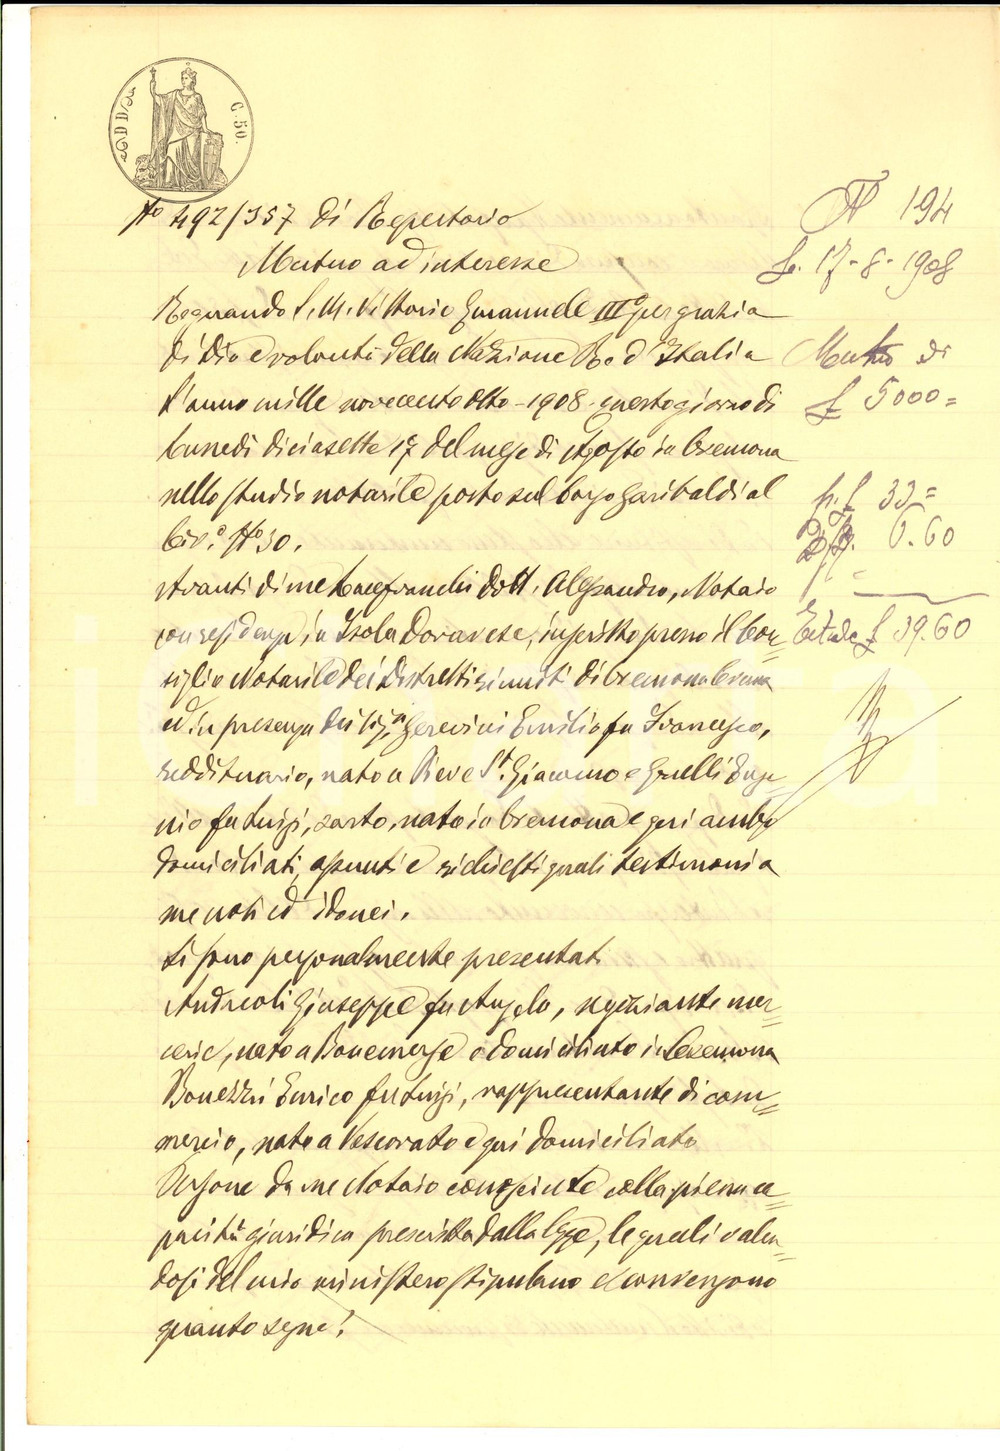 C. 50.
N° 492/357 di Repertorio
Mutuo ad interesse
Regnando S. M. Vittorio Emanuele III° per grazia
di Dio e volontà della Nazione Re d'Italia
L'anno mille novecento otto - 1908 - questo giorno di
lunedì diciasette 17 del mese di Agosto in Cremona
nello studio notarile posto sul Corso Garibaldi al
Civ.° N° 30.
Avanti di me Lanfranchi Dott. Alessandro, Notaio
con residenza in Isola Dovarese, inscritto presso il Con=
siglio Notarile dei Distretti riuniti di Cremona Crema
ed in presenza dei Sig.ri Gerevini Emilio fu Francesco,
reddituario, nato a Pieve S. Giacomo e Grelli Euge=
nio fu Luigi, sarto, nato in Cremona e qui ambo
domiciliati, assunti e richiesti quali testimoni a
me noti ed idonei.
Si sono personalmente presentati
Andreoli Giuseppe fu Angelo, negoziante mer=
cerie, nato a Bonemerse e domiciliato in Cremona
Bonezzi Enrico fu Luigi, rappresentante di com=
mercio, nato a Vescovato e qui domiciliato
Persone da me Notaio conosciute colla piena ca=
pacità giuridica prescritta dalla legge, le quali valen=
dosi del mio ministero stipulano e convengono
quanto segue:
N 194
17-8-1908
Mutuo di
£ 5000=
£ 33=
6.60
£ 39.60